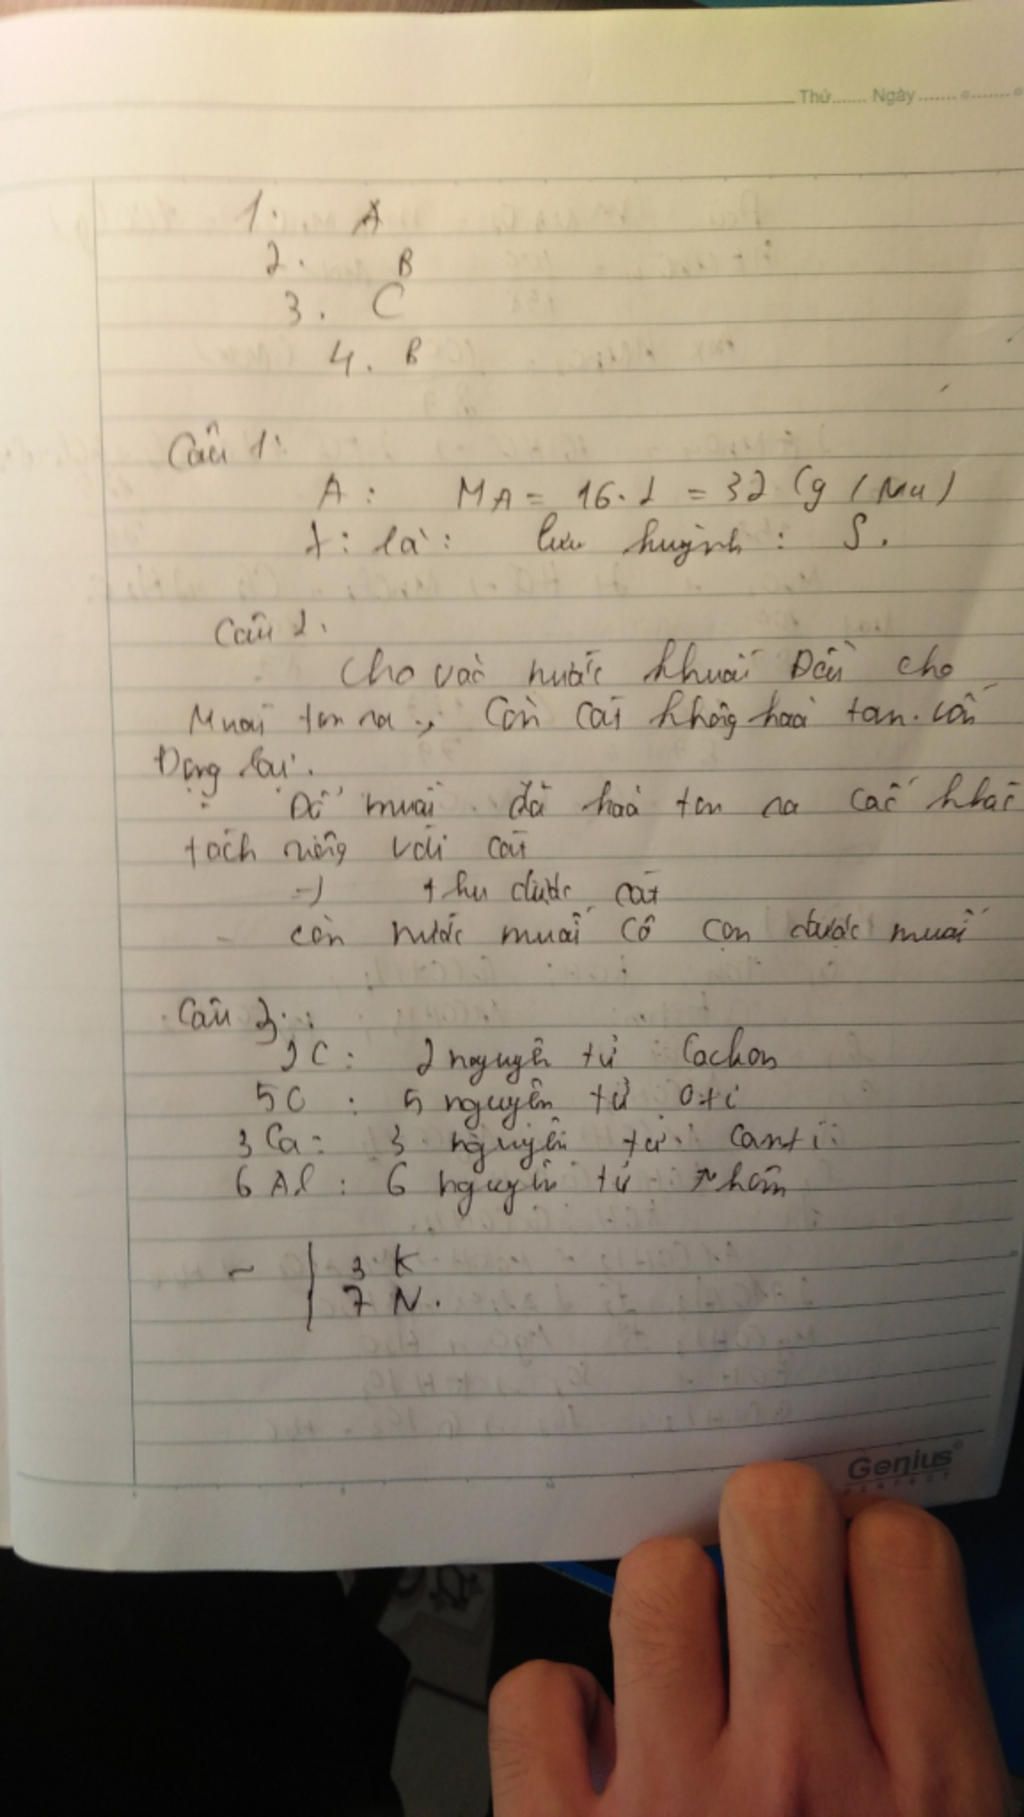 Thứ....... Ngày........
1. A
2. B
3. C
4. B
Câu 1:
A: MA = 16.2 = 32 (g / Mu)
là: lưu huỳnh: S.
Câu 2.
Cho vào nước khuấy Đều cho
Muối tan ra, Còn Cát không hoà tan. Còn
Đọng lại.
Đổ muối đã hoà tan ra cốc khác
tách riêng với cát
=> thu được cát
còn nước muối cô cạn được muối
Câu 3:
2C: 2 nguyên tử Cacbon
5O : 5 nguyên tử Oxi
3Ca: 3 nguyên tử Canxi
6 Al: 6 nguyên tử Nhôm
- 3 K
7 N.
Genius